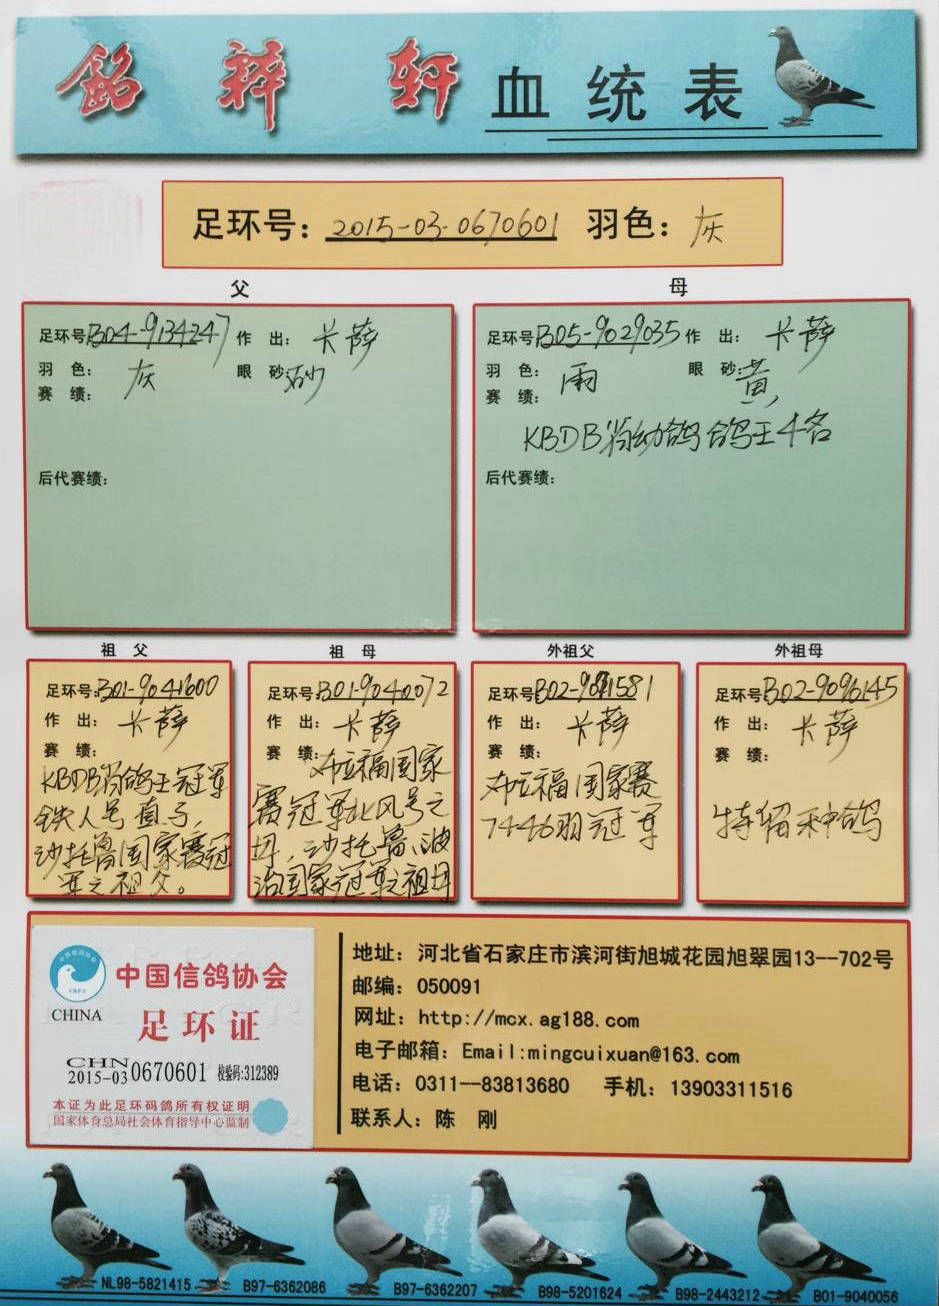 銘粹轩 血统表
足环号：2015-03-0670601 羽色：灰
父
母
足环号B04-9134247 作 出：卡萨
羽 色：灰 眼 砂：砂
赛 绩：
后代赛绩：
足环号B05-9029035 作 出：卡萨
羽 色：雨 眼 砂：黄
赛 绩：
KBDB省幼鸽鸽王4名
后代赛绩：
祖 父
祖 母
外祖父
外祖母
足环号：B01-9041600
作 出：卡萨
赛 绩：
KBDB省鸽王冠军
铁人号直子，
沙托鲁国家赛冠
军之祖父。
足环号：B01-9040072
作 出：卡萨
赛 绩：布拉福国家
赛冠军北风号之
母，沙托鲁、波
治国家冠军之祖母
足环号：B02-9081581
作 出：卡萨
赛 绩：
布拉福国家赛
7446羽冠军
足环号：B02-9096145
作 出：卡萨
赛 绩：
特留种鸽
中国信鸽协会
CHINA
足环证
CHN
2015-03 0670601 校验码:312389
本证为此足环码鸽所有权证明
国家体育总局社会体育指导中心监制
地址：河北省石家庄市滨河街旭城花园旭翠园13--702号
邮编：050091
网址：http://mcx.ag188.com
电子邮箱：Email:mingcuixuan@163.com
电话：0311--83813680 手机：13903311516
联系人：陈 刚
NL98-5821415 B97-6362086 B97-6362207 B98-5201624 B98-2443212 B01-9040056